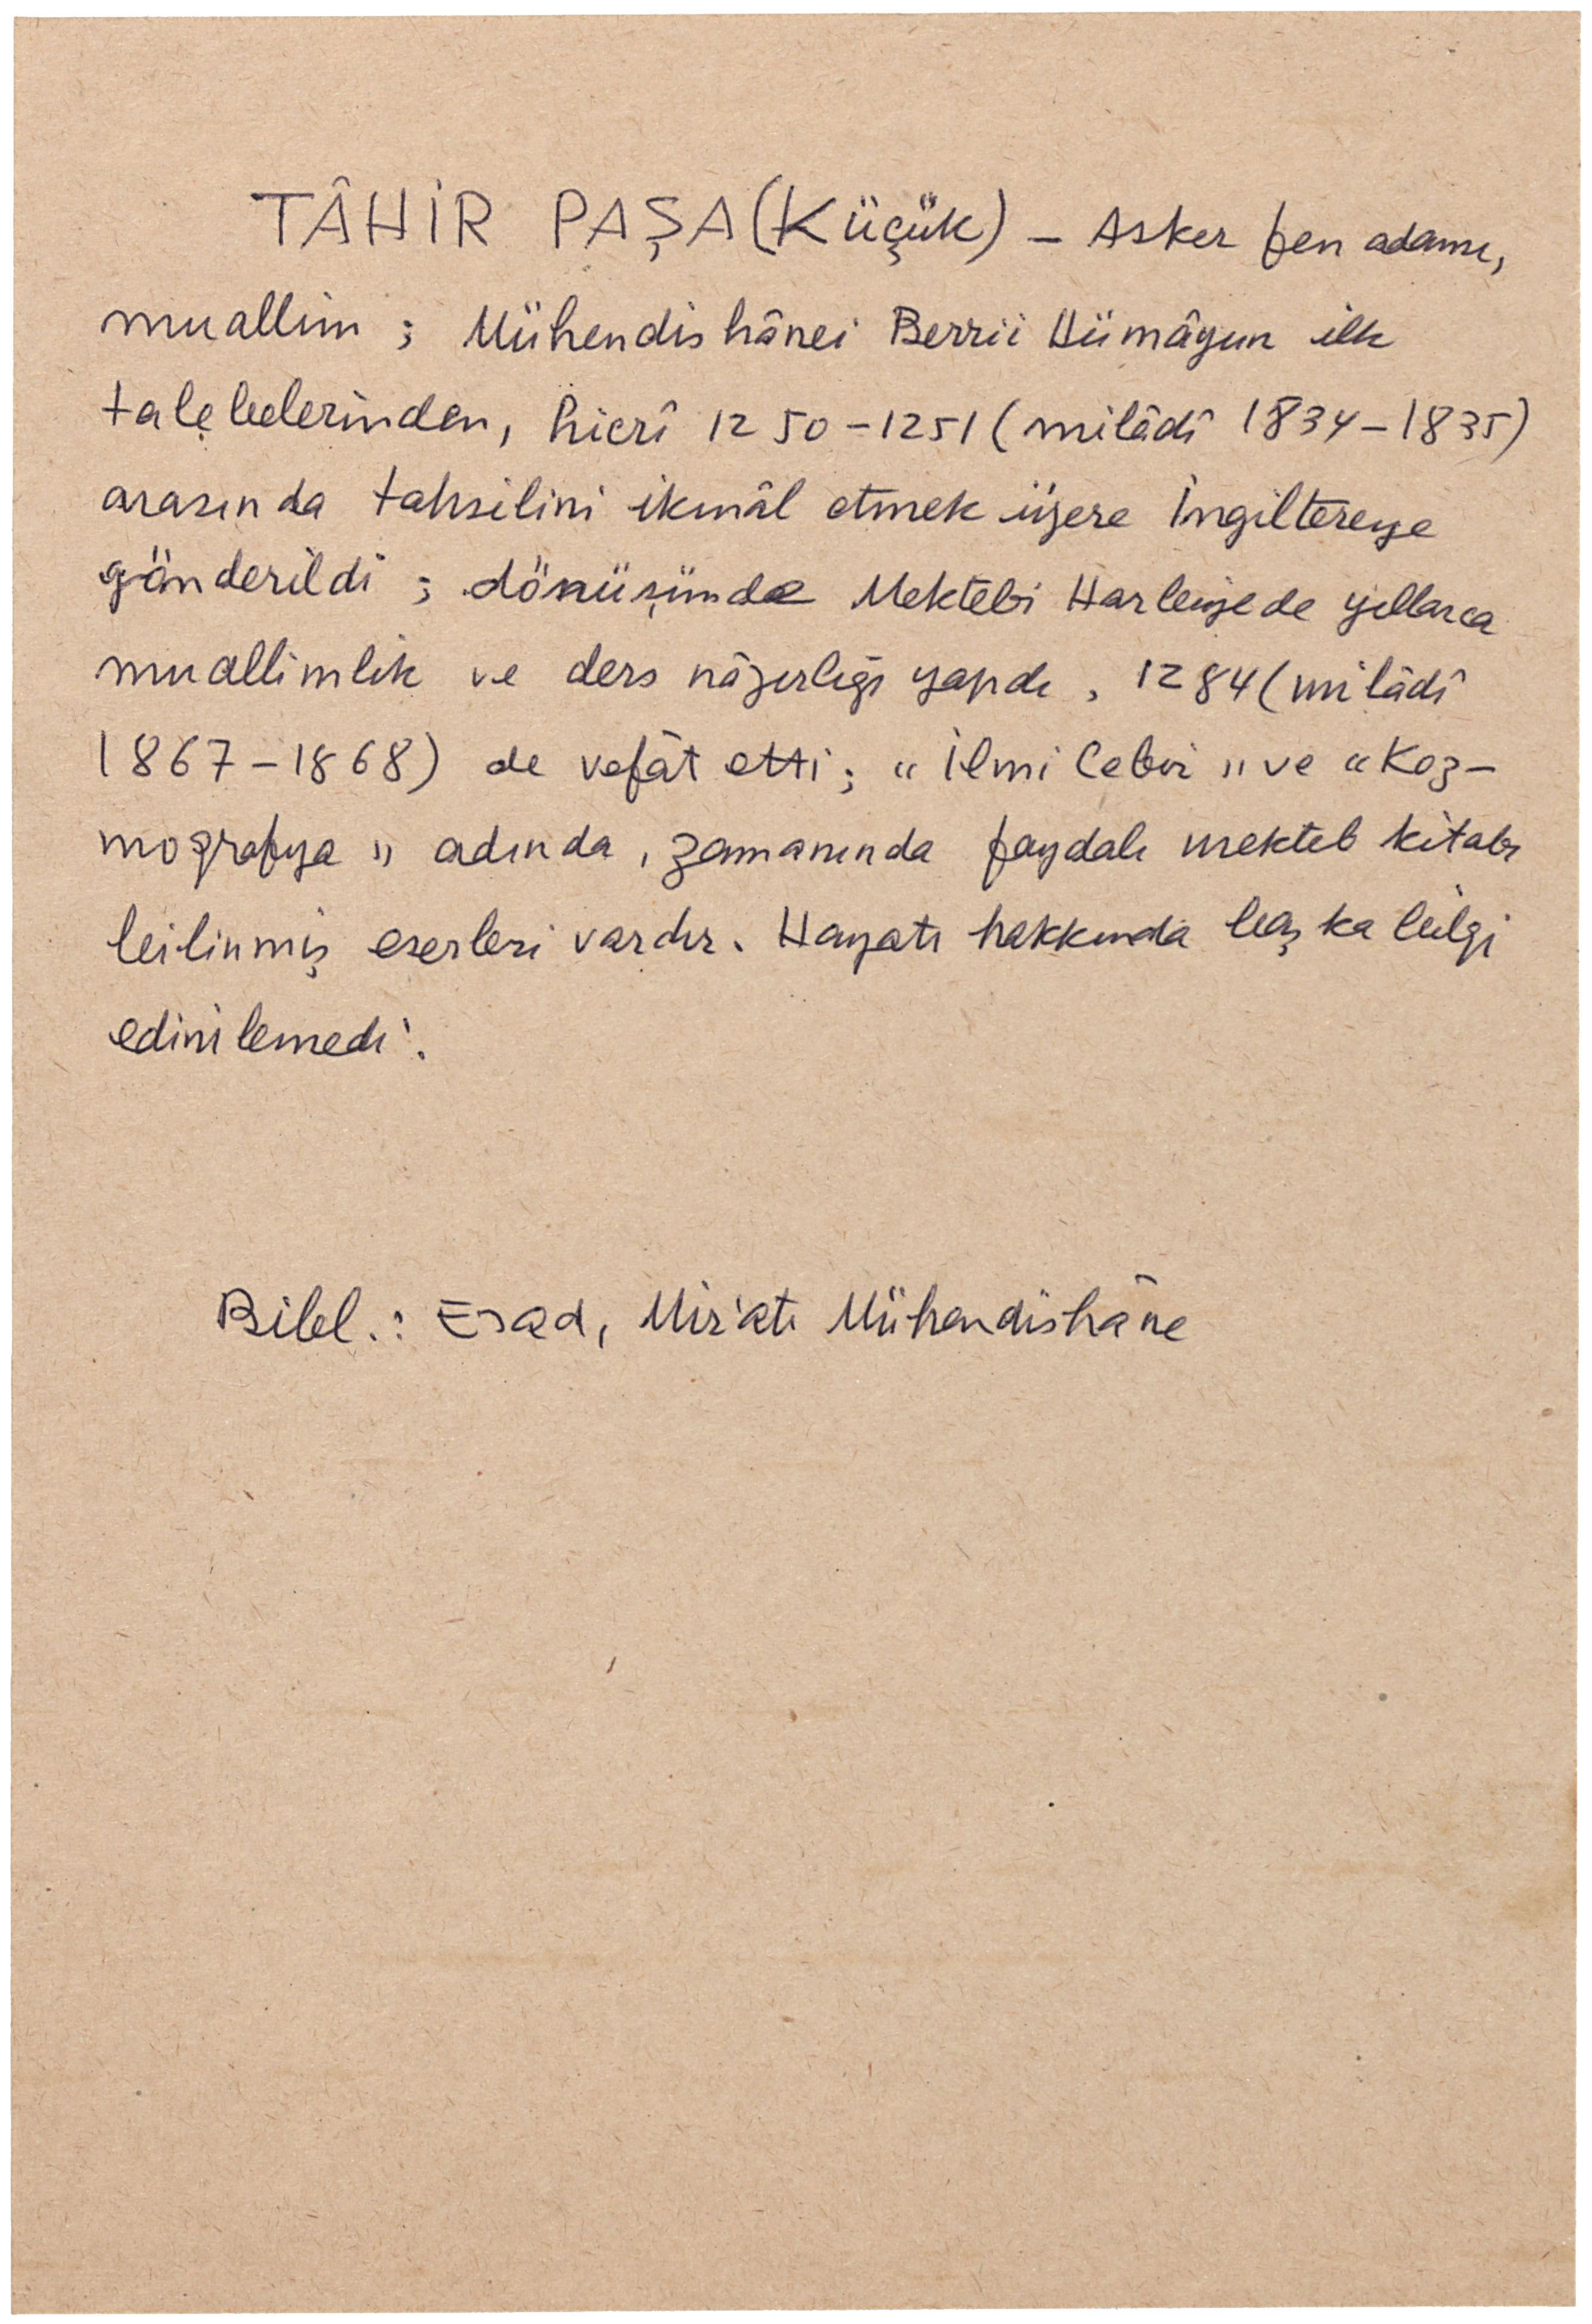 TÂHİR PAŞA (Küçük) – Asker fen adamı,
muallim ; Mühendishânei Berrii Hümâyun ilk
talebelerinden, hicrî 1250-1251 (milâdî 1834-1835)
arasında tahsilini ikmâl etmek üzere İngiltereye
gönderildi ; dönüşünde Mektebi Harbiyede yıllarca
muallimlik ve ders nâzırlığı yapdı, 1284 (milâdî
1867-1868) de vefât etti ; "İlmi Cebir" ve "Koz-
mografya" adında, zamanında faydalı mekteb kitabı
bilinmiş eserleri vardır. Hayatı hakkında başka bilgi
edinilemedi.
Bibl.: Esad, Mir'atı Mühendishâne